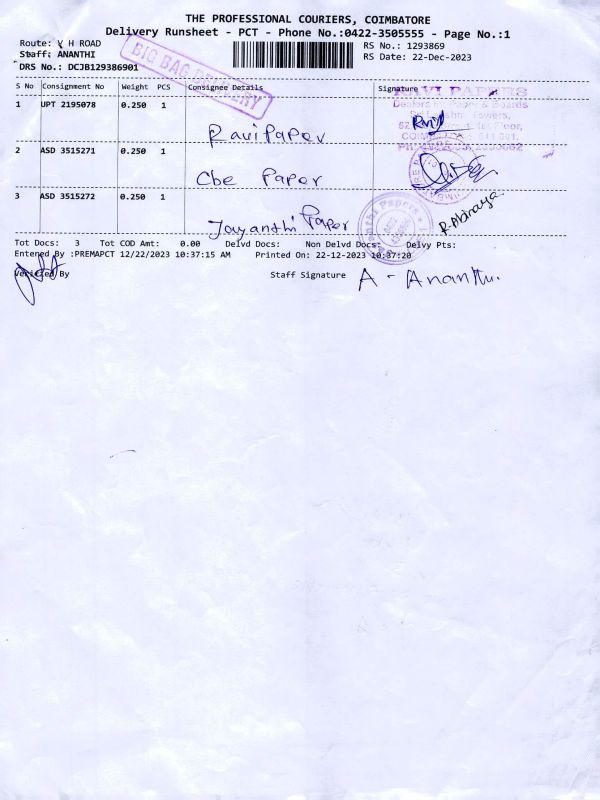 THE PROFESSIONAL COURIERS, COIMBATORE
Delivery Runsheet - PCT - Phone No.:0422-3505555 - Page No.:1
Route: V H ROAD
RS No.: 1293869
Staff: ANANTHI
RS Date: 22-Dec-2023
DRS No.: DCJB129386901
BIG BAG DELIVERY
S No Consignment No Weight PCS Consignee Details Signature
1 UPT 2195078 0.250 1
RAVI PAPERS
Ravi Paper
2 ASD 3515271 0.250 1
Cbe Paper
3 ASD 3515272 0.250 1
Jayanthi Paper
R. Abinaya
Tot Docs: 3 Tot COD Amt: 0.00 Delvd Docs: Non Delvd Docs: Delvy Pts:
Entered By :PREMAPCT 12/22/2023 10:37:15 AM Printed On: 22-12-2023 10:37:20
Verified By
Staff Signature A - Ananthi.